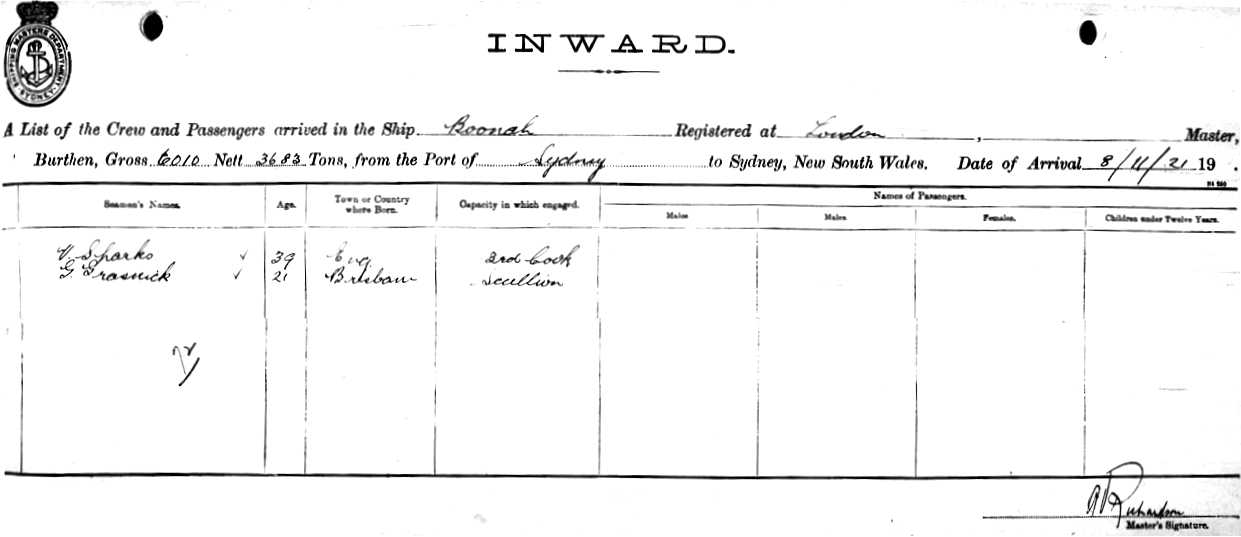 SHIPPING MASTERS DEPARTMENT SYDNEY
INWARD.
A List of the Crew and Passengers arrived in the Ship Boonah Registered at London , Master,
Burthen, Gross 6010 Nett 3683 Tons, from the Port of Sydney to Sydney, New South Wales. Date of Arrival 8/11/21 19 .
Seamen's Names. Age. Town or Country where Born. Capacity in which engaged. Names of Passengers.
Males Males. Females. Children under Twelve Years.
V. Sparks ✓ 39 Eng. 2nd Cook
G. Grasnick ✓ 21 Brisbane Scullion
A Richardson
Master's Signature.